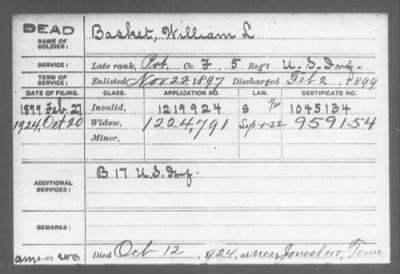 DEAD
NAME OF SOLDIER: Basket, William L.
SERVICE: Late rank, Pvt. Co. F, 5 Reg't U.S. Inf.
TERM OF SERVICE: Enlisted Nov 22 1897 Discharged Feb 2, 1899
DATE OF FILING. CLASS. APPLICATION NO. LAW. CERTIFICATE NO.
1899 Feb. 27 Invalid, 1219924 1045134
1924, Oct 20 Widow, 1224,791 959154
Minor,
ADDITIONAL SERVICES: B 17 U.S. Inf.
REMARKS:
Died Oct 12, 1924, at near Jonesboro, Tenn